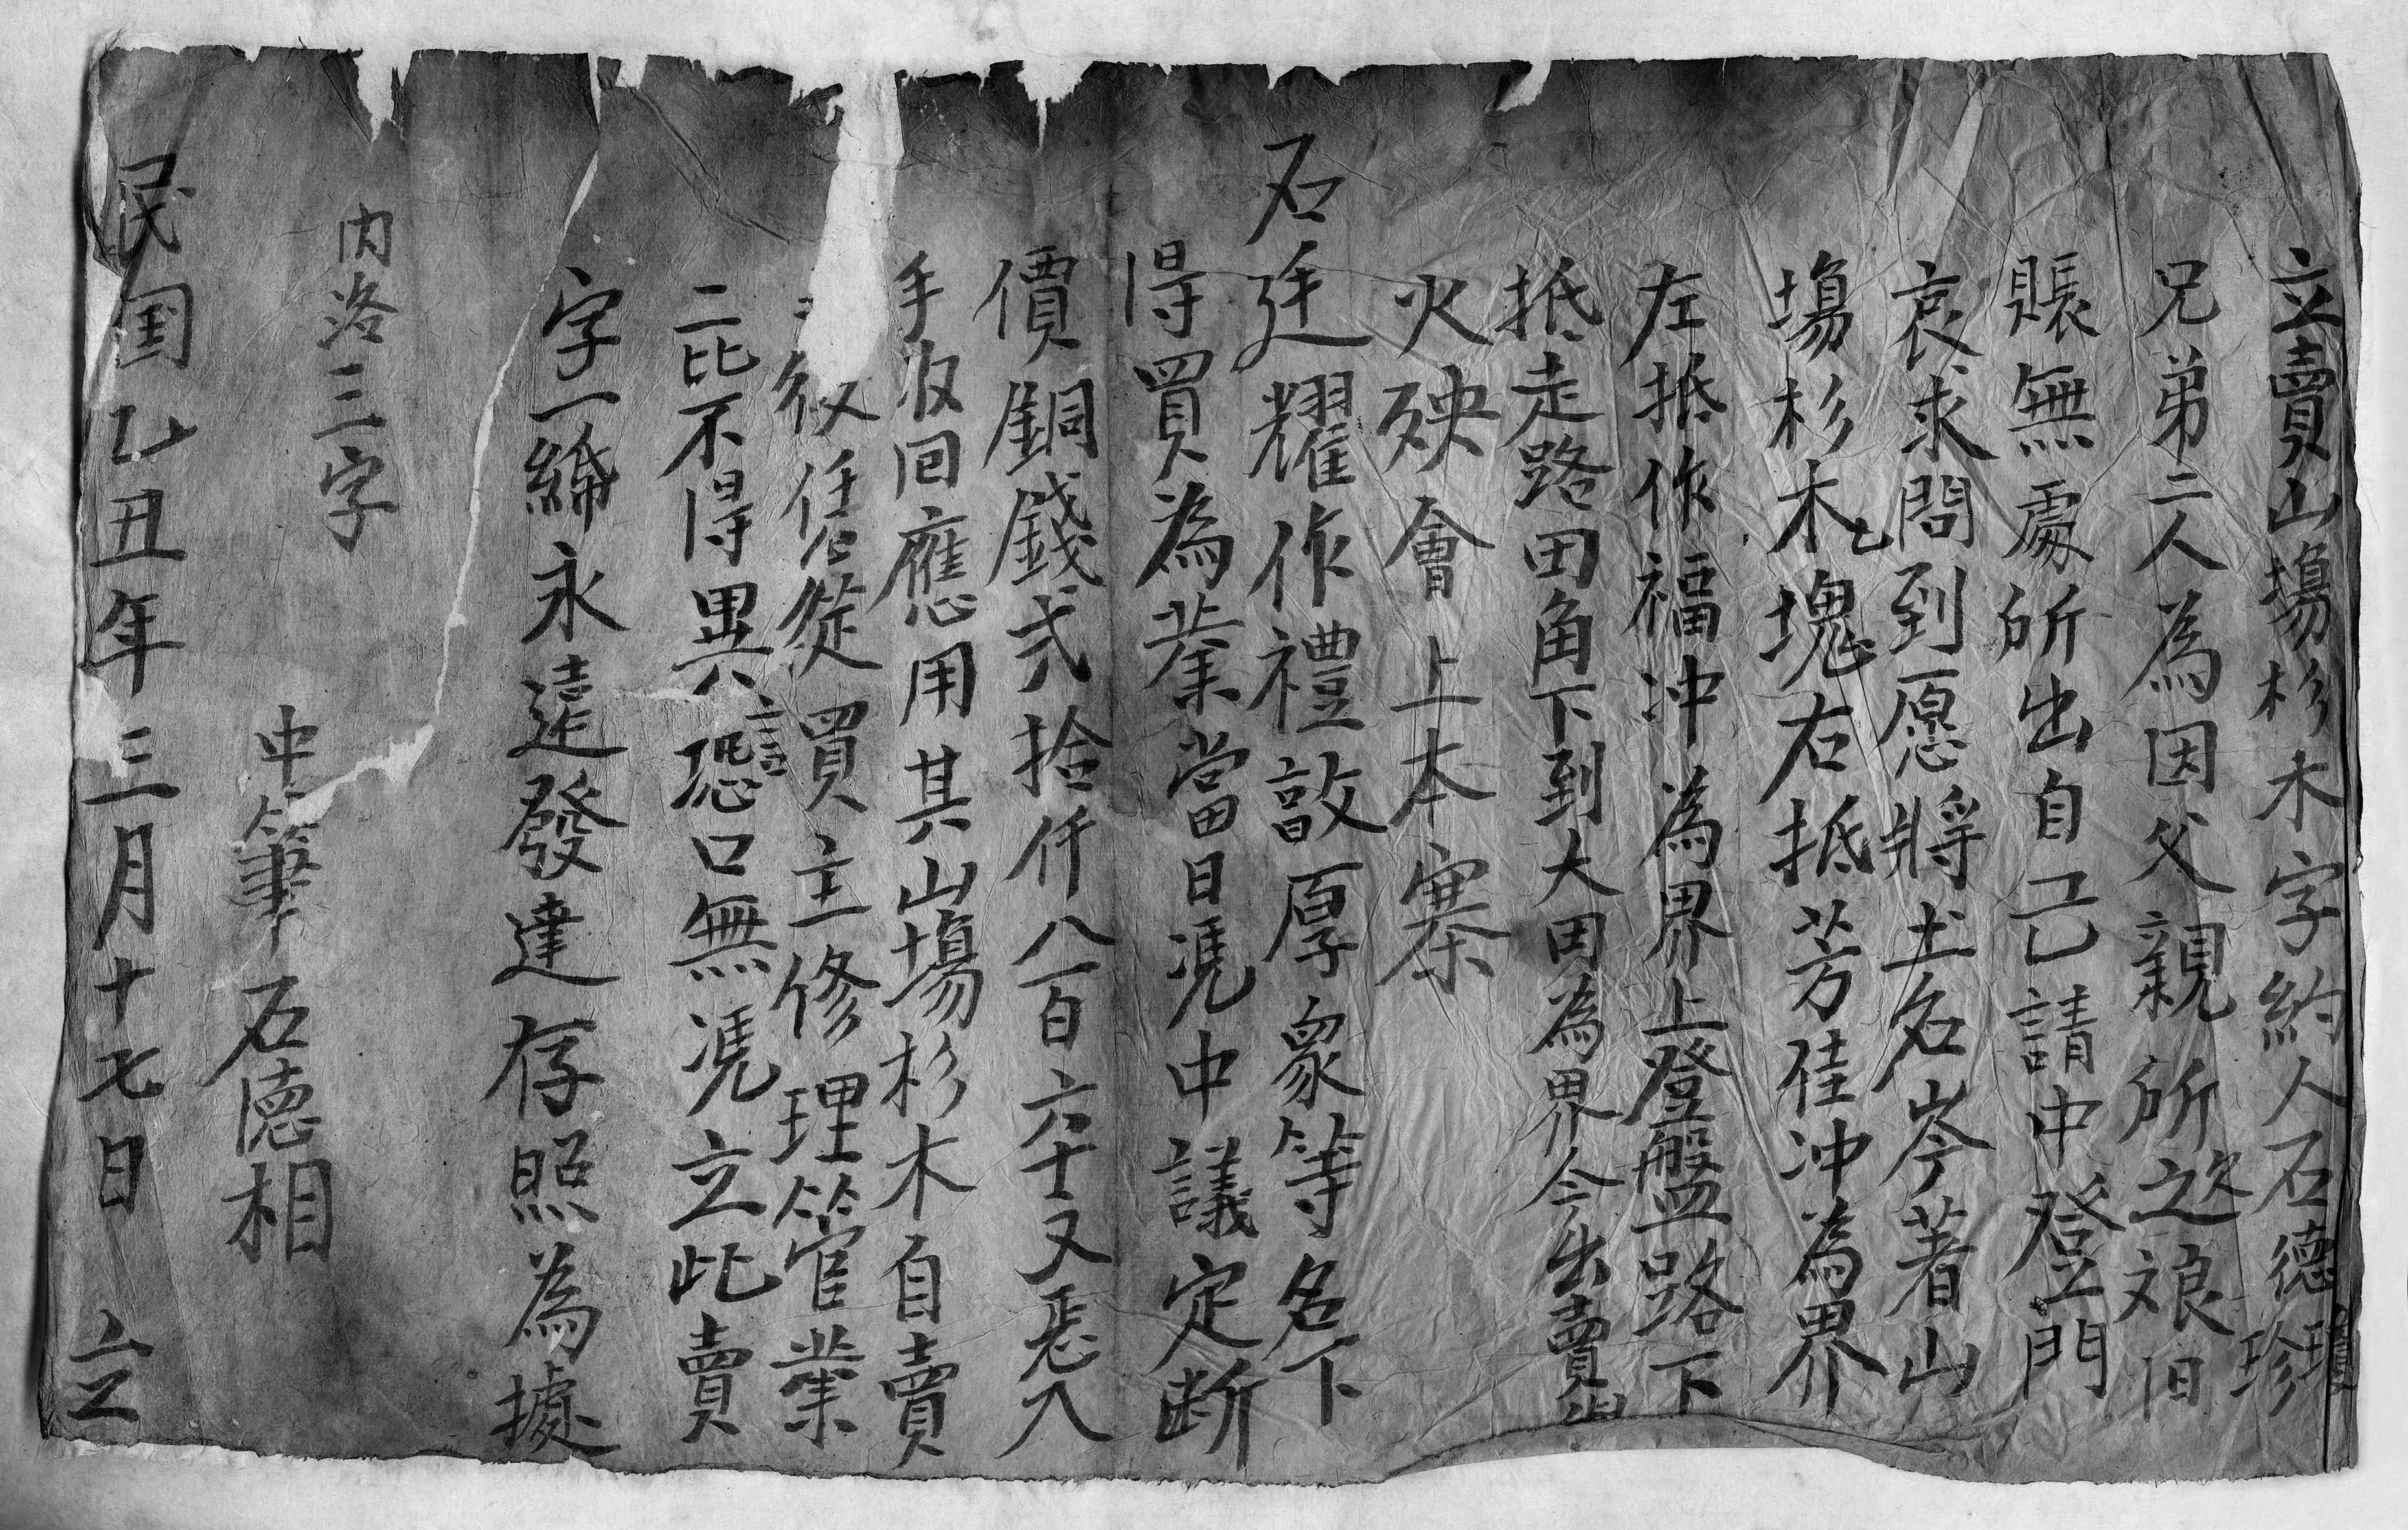 立賣山塲杉木字約人石德珍
兄弟二人為因父親所之娘旧
賬無處所出自己請中登門
哀求問到愿將土名岑著山
塲杉木乜塊右抵芳佳冲為界
左抵作福冲為界上登盤路下
抵走路田角下到大田為界今出賣與
火殃會上本寨
石廷耀作禮敨厚衆等名下
得買為業當日凴中議定断
價銅錢弐拾仟八百六十文悉入
手收回應用其山塲杉木自賣
叙任從買主修理管業
二比不得異言恐口無凴立此賣
字一䋛永遠發達存照為據
内洛三字
中筆石德相
民国乙丑年三月十七日立